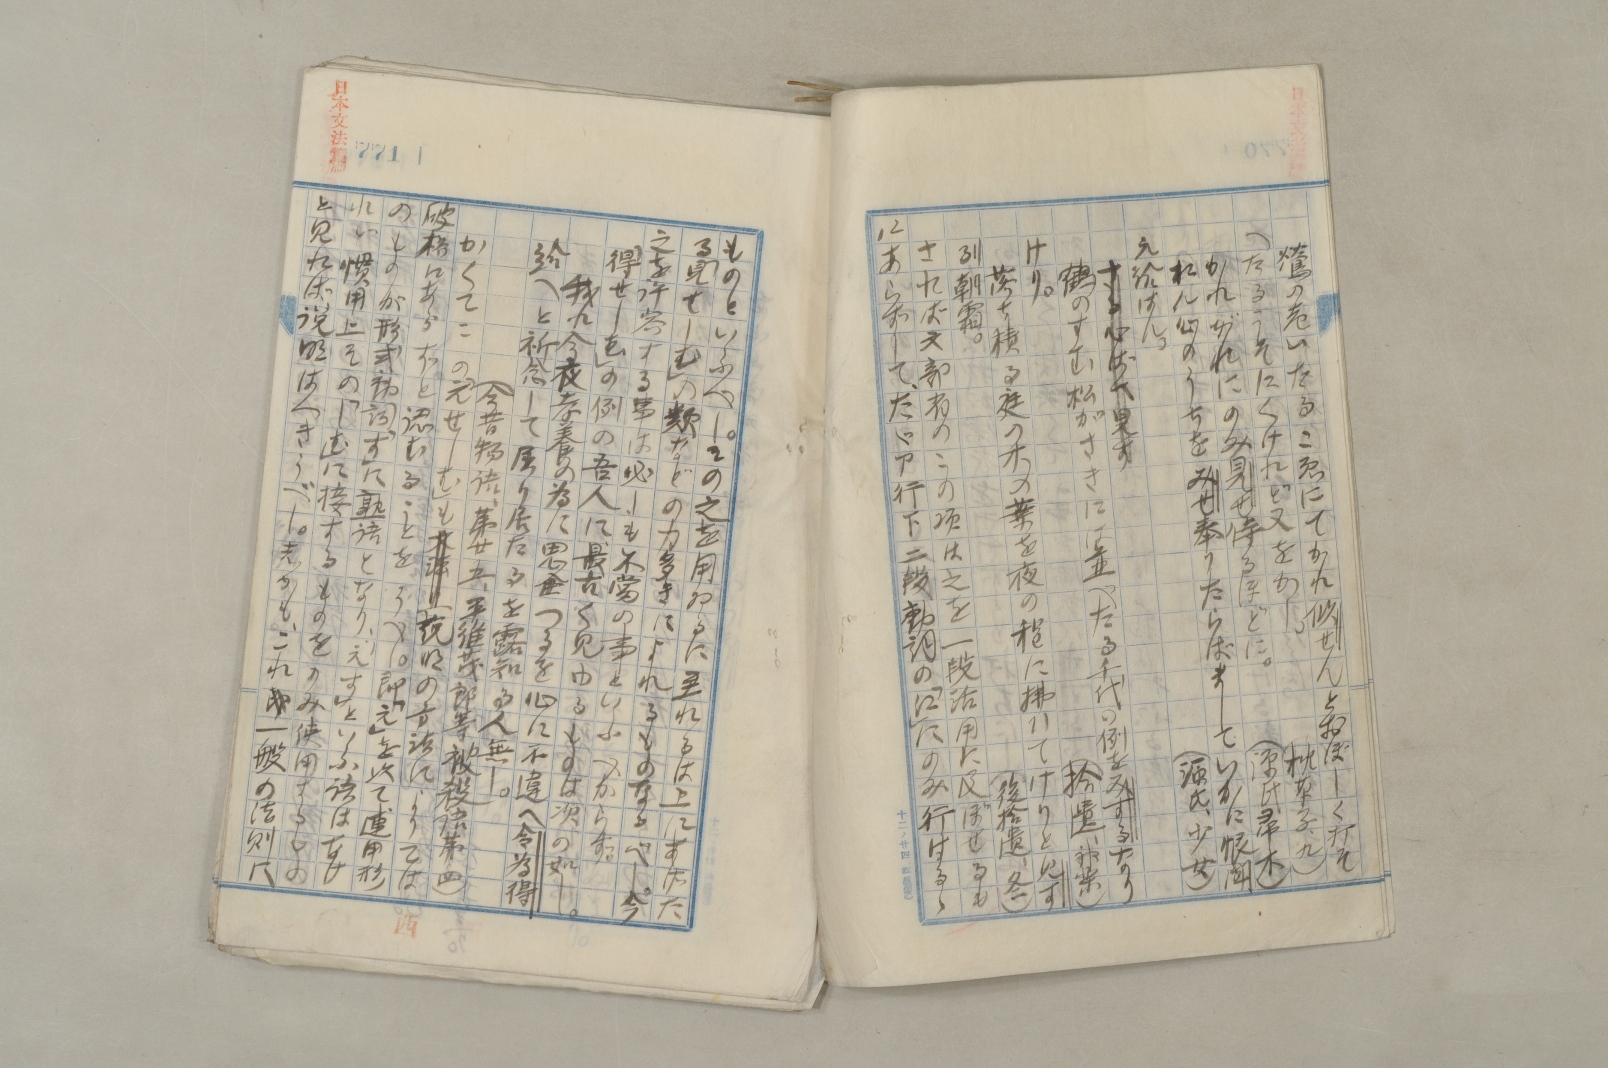 鶯の巻いたるこゑにてかれ似せんとおぼしくなそ
へたるうそにくけれど又をかし。（枕草子、九）
かれがれにのみ見せ侍るほどに。（源氏、帚木）
れん心のうちをみせ奉りたらばましていかに恨聞
え給はん。（源氏、少女）
する心ばへ見す
鶴のすむ松がさきには並べたる千代の例をみするなり
けり。（拾遺、神楽）
落ち積る庭の木の葉を夜の程に拂ひてけりと見す
る朝霜。（後拾遺、冬）
されば文部省のこの項は之を一段活用に及ぼせるも
にあらずして、たゞア行下二段動詞の「に」にのみ行はるゝ
ものといふべし。その之を用ゐるに至れるは上にあげた
る「見せしむ」の類などの力多きによれるものなるべし。今
之を許容する事は必しも不當の事といふべからず。
「得せしむ」の例の吾人に最古く見ゆるものは次の如し。
我れ今夜孝養の為に思企つるを心に不違へ令為得
給へと祈念して居り居たるを露知る人無し。
（今昔物語、第廿五、平維茂郎等被殺語第四）
かくてこの「元せしむ」も説明の方法によりては
破格にあらずと認むることをうべし。即「元」を以て連用形
のものが形式動詞「す」に熟語となり、「えす」といふ語はなけ
れい慣用上その「しむ」に接するものをのみ使用するもの
と見れば説明はべきうべし。しかも、これ或一般の法則に
日本文法論
771
770
四